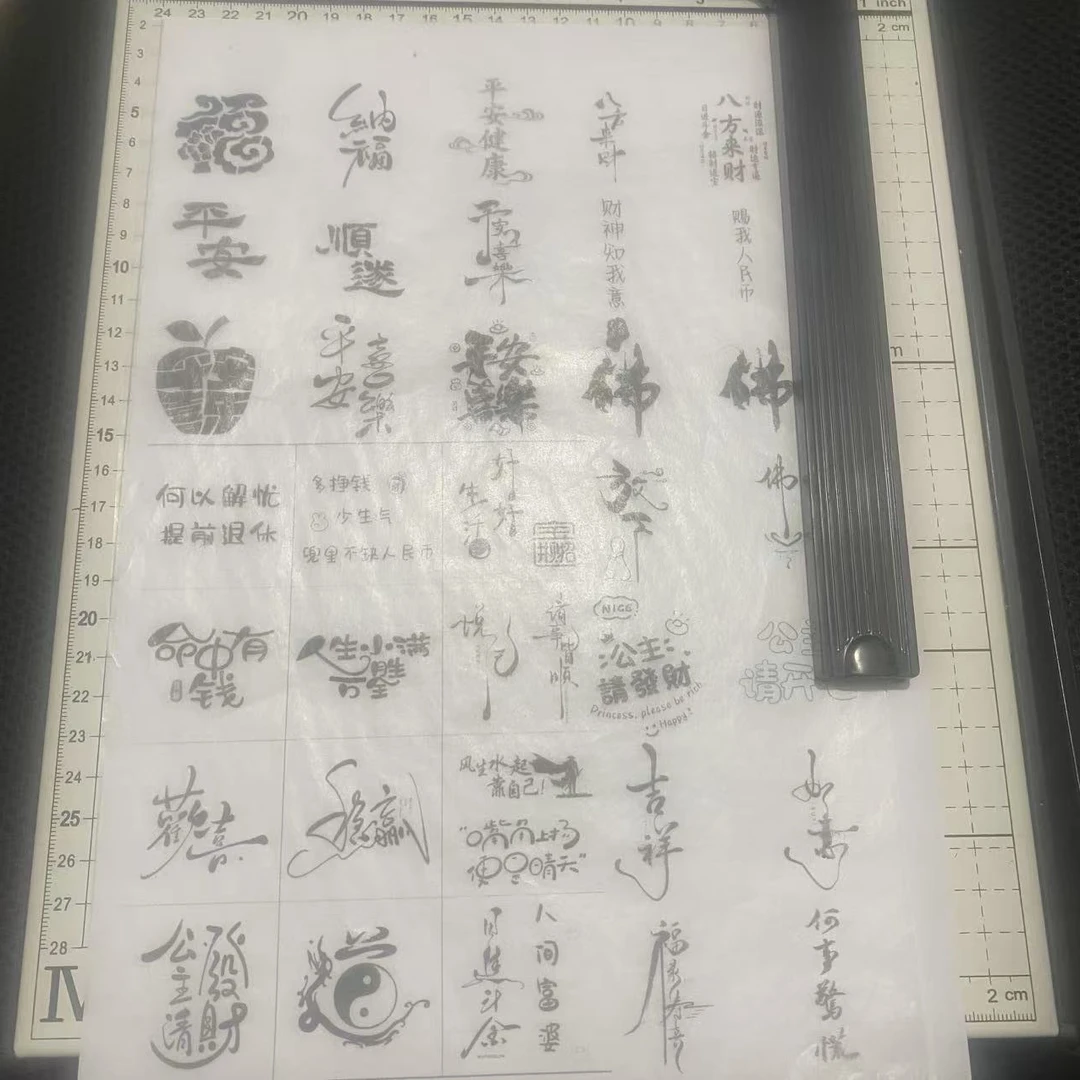 24 23 22 21 20 19 18 17 16 15 14 13 12 11 10
1 inch
2 cm
2
3
4
5
6
7
8
9
10
11
12
13
14
15
16
17
18
19
20
21
22
23
24
25
26
27
28
福
納福
平安健康
八方来财
八方来财
平安
順遂
平安喜樂
财神知我意
赐我人民币
平安喜樂
平安喜樂
佛
佛
何以解忧
提前退休
多挣钱
少生气
兜里不缺人民币
好好生活
放下
佛
命中有钱
人生小满
悦己
诸事皆顺
NICE
公主
請發財
Princess, please be rich
Happy
公主
请开
歡喜
稳赢
风生水起
靠自己!
"嘴角上扬
便是晴天"
吉祥
如意
公主請發财
日進斗金
人间富婆
福
何事驚慌
IV
2 cm